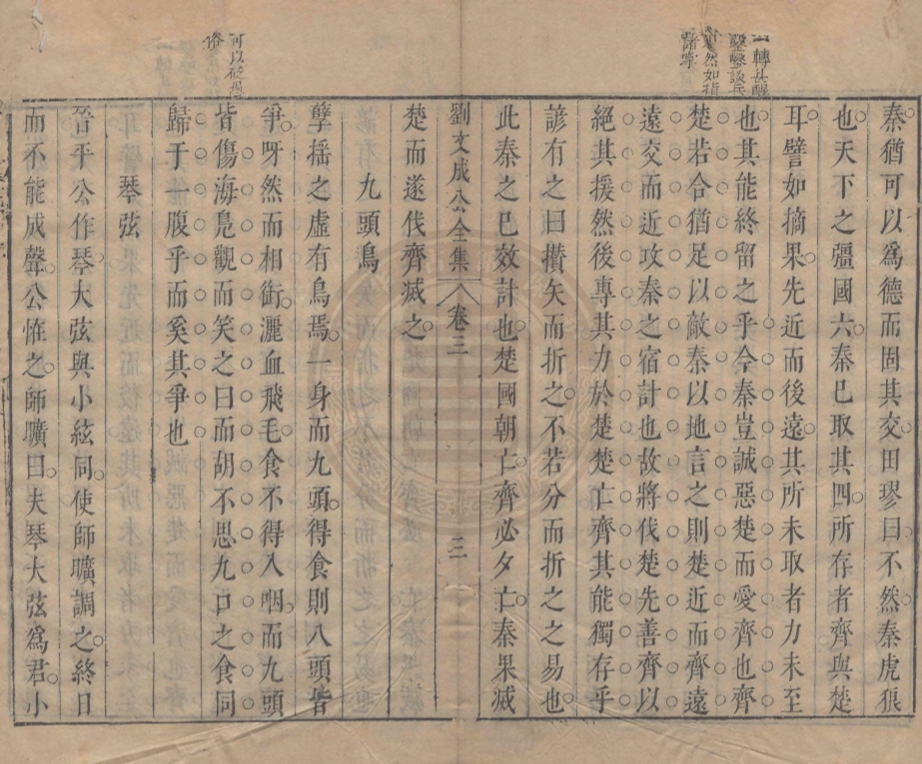 秦猶可以爲德而固其交田璆曰不然秦虎狼
也天下之彊國六秦已取其四所存者齊與楚
耳譬如摘果先近而後遠其所未取者力未至
也其能終留之乎今秦豈誠惡楚而愛齊也齊
楚若合猶足以敵秦以地言之則楚近而齊遠
遠交而近攻秦之宿計也故將伐楚先善齊以
絕其援然後專其力於楚楚亡齊其能獨存乎
諺有之曰攢矢而折之不若分而折之之易也
此秦之已效計也楚國朝亡齊必夕亡秦果滅
劉文成公全集 卷三 三
楚而遂伐齊滅之
九頭鳥
孽揺之虛有鳥焉一身而九頭得食則八頭皆
爭呀然而相銜灑血飛毛食不得入咽而九頭
皆傷海鳧觀而笑之曰而胡不思九口之食同
歸于一腹乎而奚其爭也
琴弦
晉平公作琴大弦與小絃同使師曠調之終日
而不能成聲公怪之師曠曰夫琴大弦爲君小
可以砭愚
俗